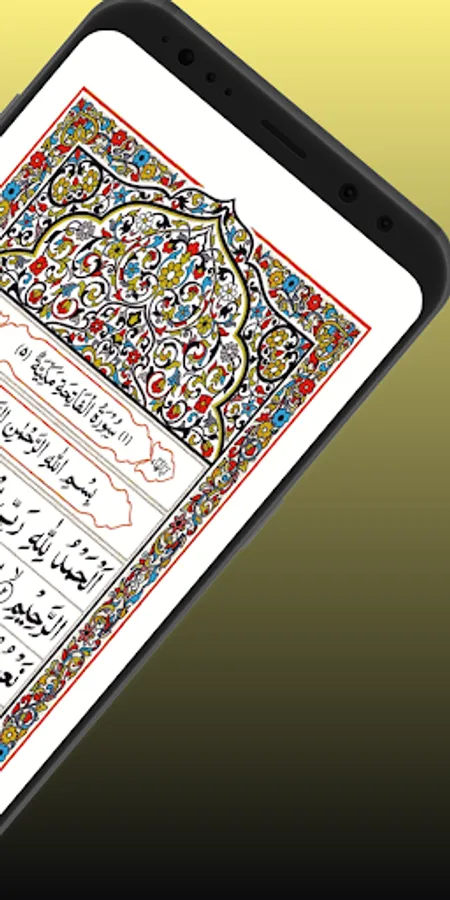 (۱) سُوْرَةُ الْفَاتِحَةِ مَكِّيَّةٌ (۵)
بِسْمِ اللّٰهِ الرَّحْمٰنِ
اَلْحَمْدُ لِلّٰهِ رَبِّ
الرَّحِيْمِ